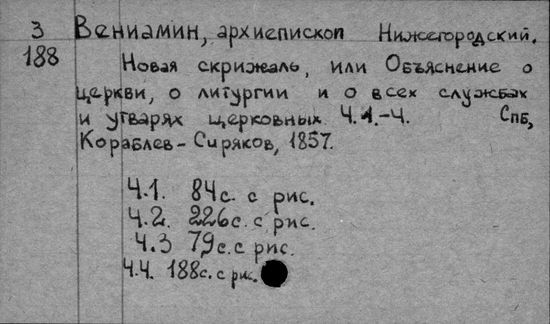 З
188
Вениамин, архиепископ Нижегородский.
Новая скрижаль, или Объяснение о
церкви, о литургии и о всех службах
и утварях церковных. Ч.1.-4. Спб,
Кораблев-Сиряков, 1857.
Ч.1. 84с. с рис.
Ч.2. 226с. с рис.
Ч.3 79с. с рис.
Ч.4. 188с. с рис.